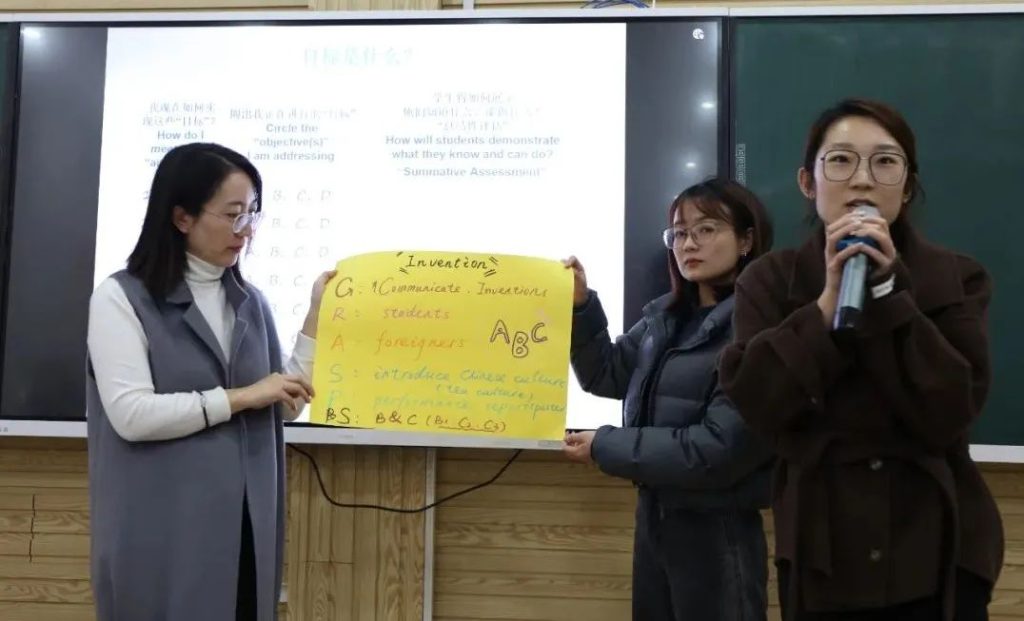 目标是什么?
我现在如何实
现这些"目标"?
How do I
圈出我正在进行的"目标"
Circle the
"objective(s)"
I am addressing
学生将如何展示
他们知道什么、能做什么?
"总结性评估"
How will students demonstrate
what they know and can do?
"Summative Assessment"
B. C. D
B. C. D
A. B. C. D
B. C.
"Invention"
G. Communicate. Inventions
R: students
A - foreigners
ABC
S: introduce Chinese culture
(tea culture)
P: performance
BS: B&C (B1. C2. C3)